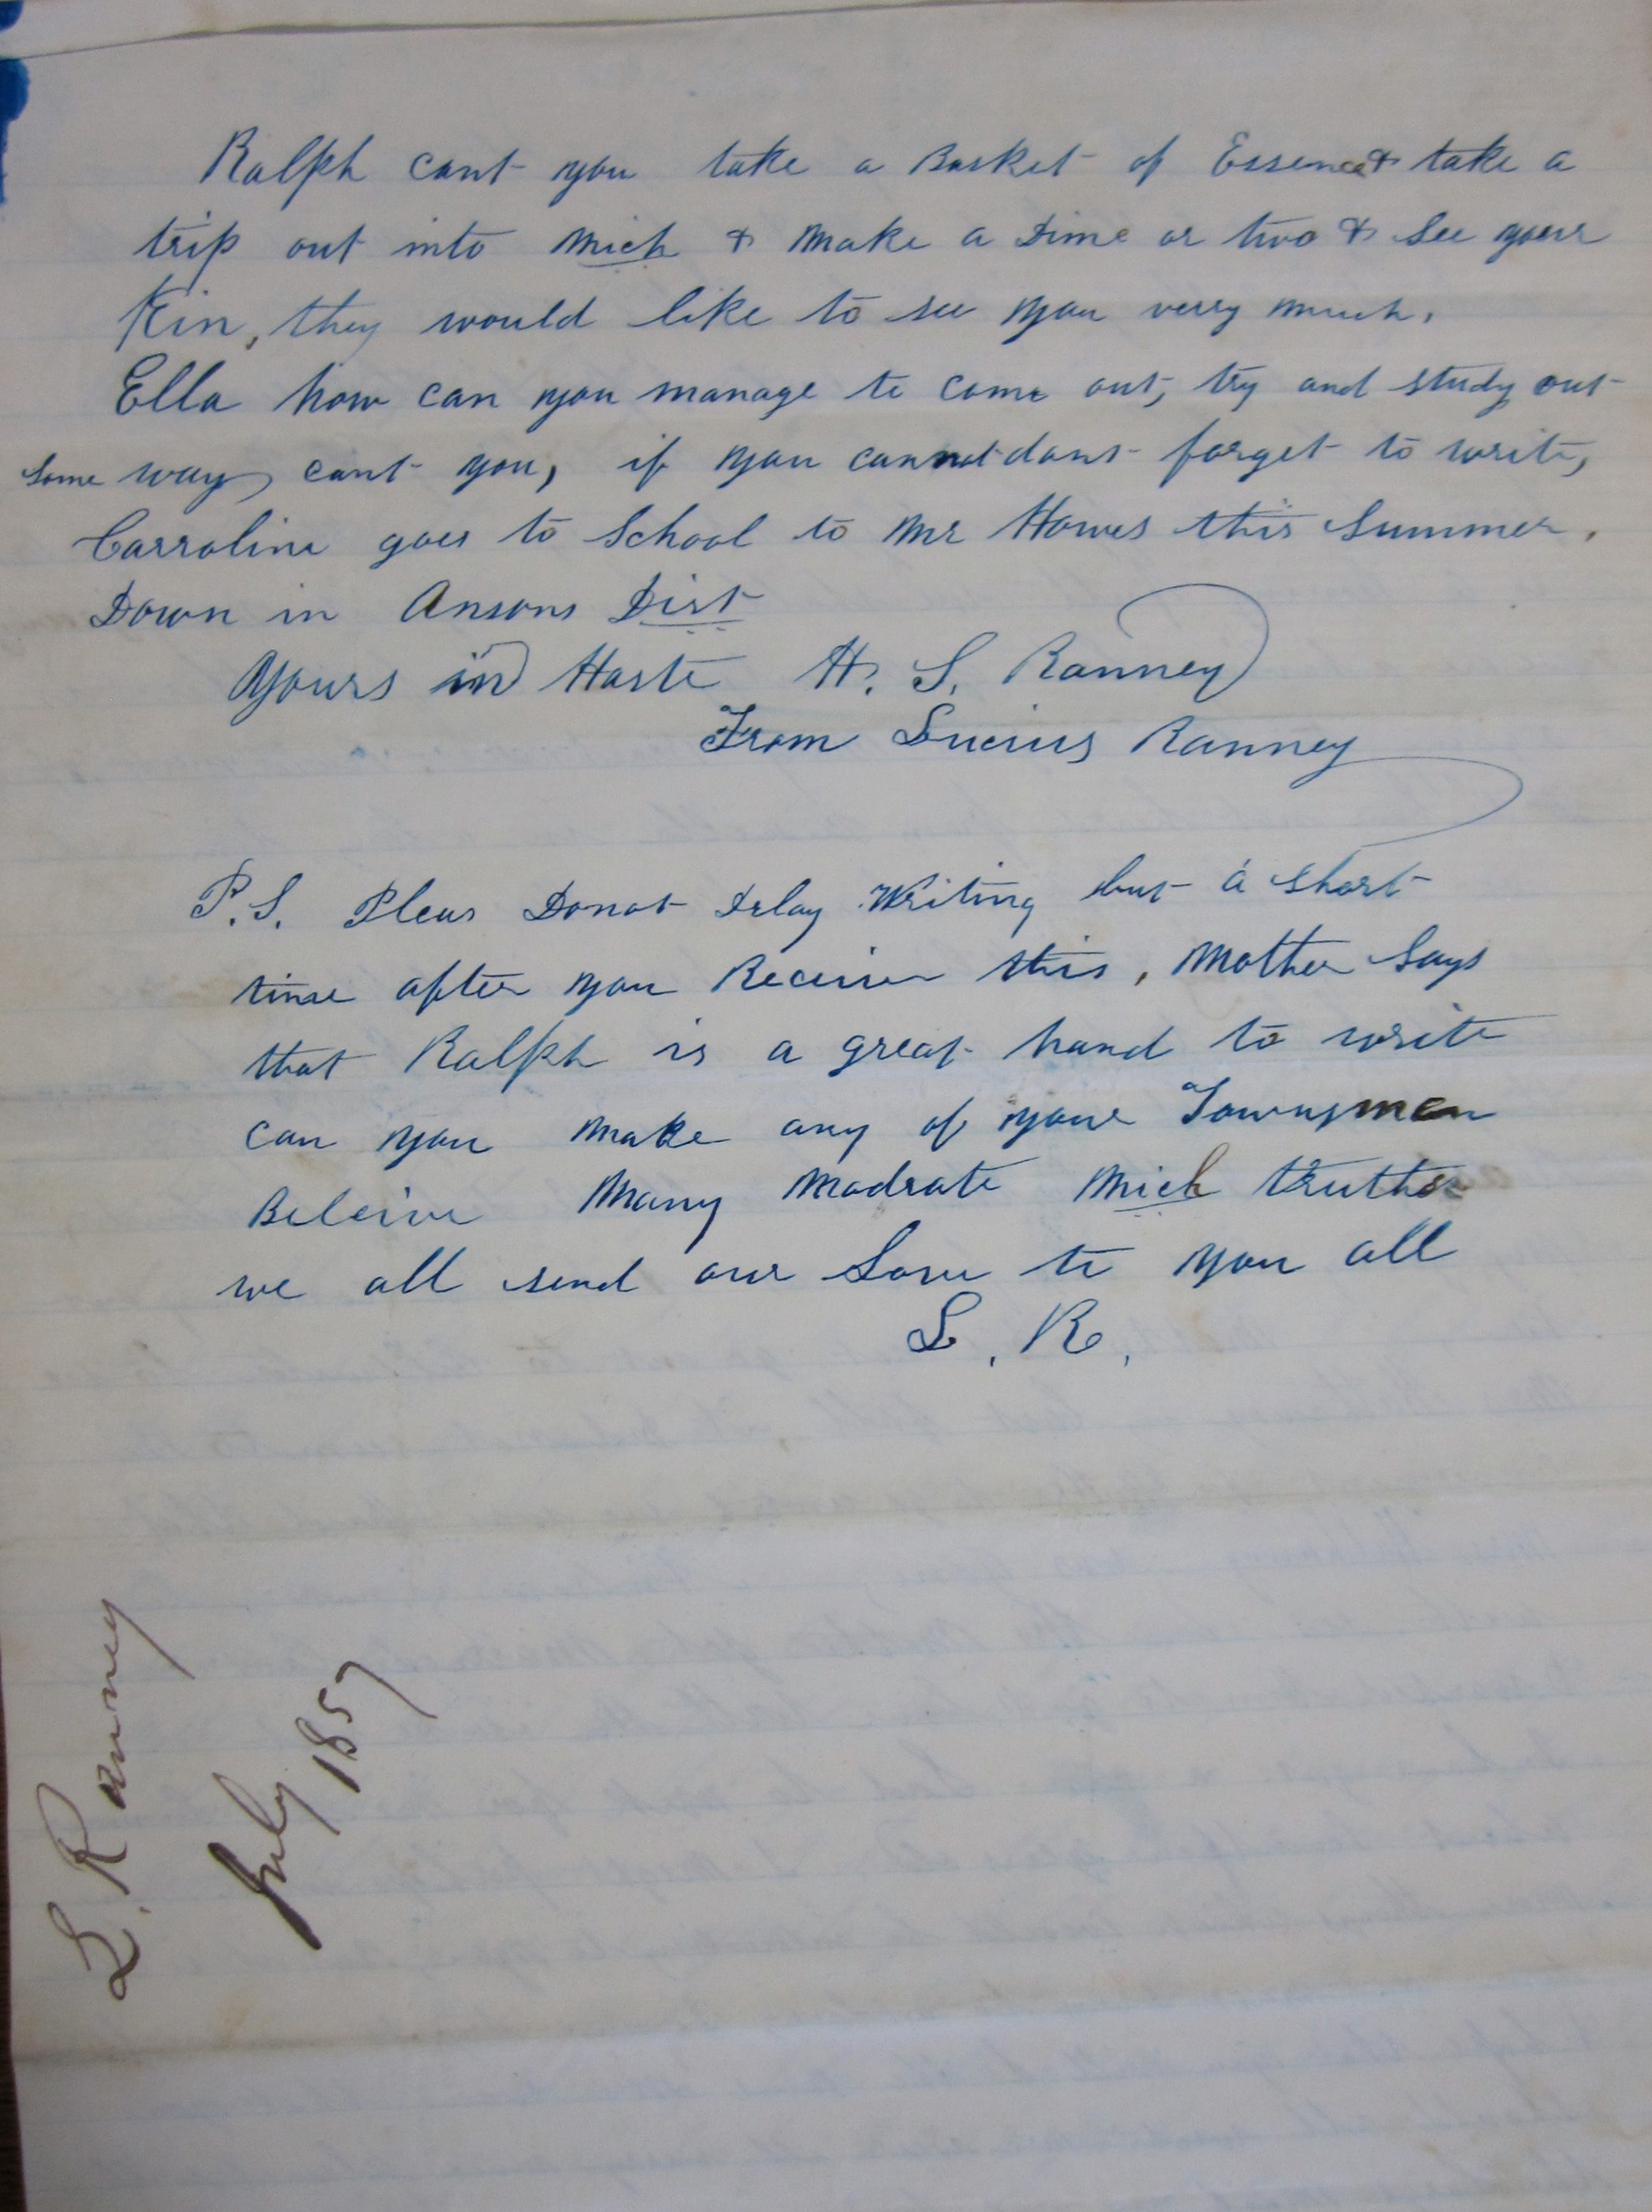 Ralph cant you take a Basket of Essence & take a
trip out into Mich & Make a Dime or two & See your
Kin, they would like to see you verry much.
Ella how can you manage to come out, try and study out
some way, cant you, if you cannot dont forget to write,
Carroline goes to School to Mr Howes this Summer.
Down in Ansons Dist
Yours in Haste H. S. Ranney
From Lucius Ranney
P.S. Pleas Donot Delay Writing but a short
time after you Receive this, Mother Says
that Ralph is a great hand to write
can you make any of your Townsmen
Beleive Many Modrate Mich truths
we all send our Love to you all
L. R.
L. Ranney
July 1857